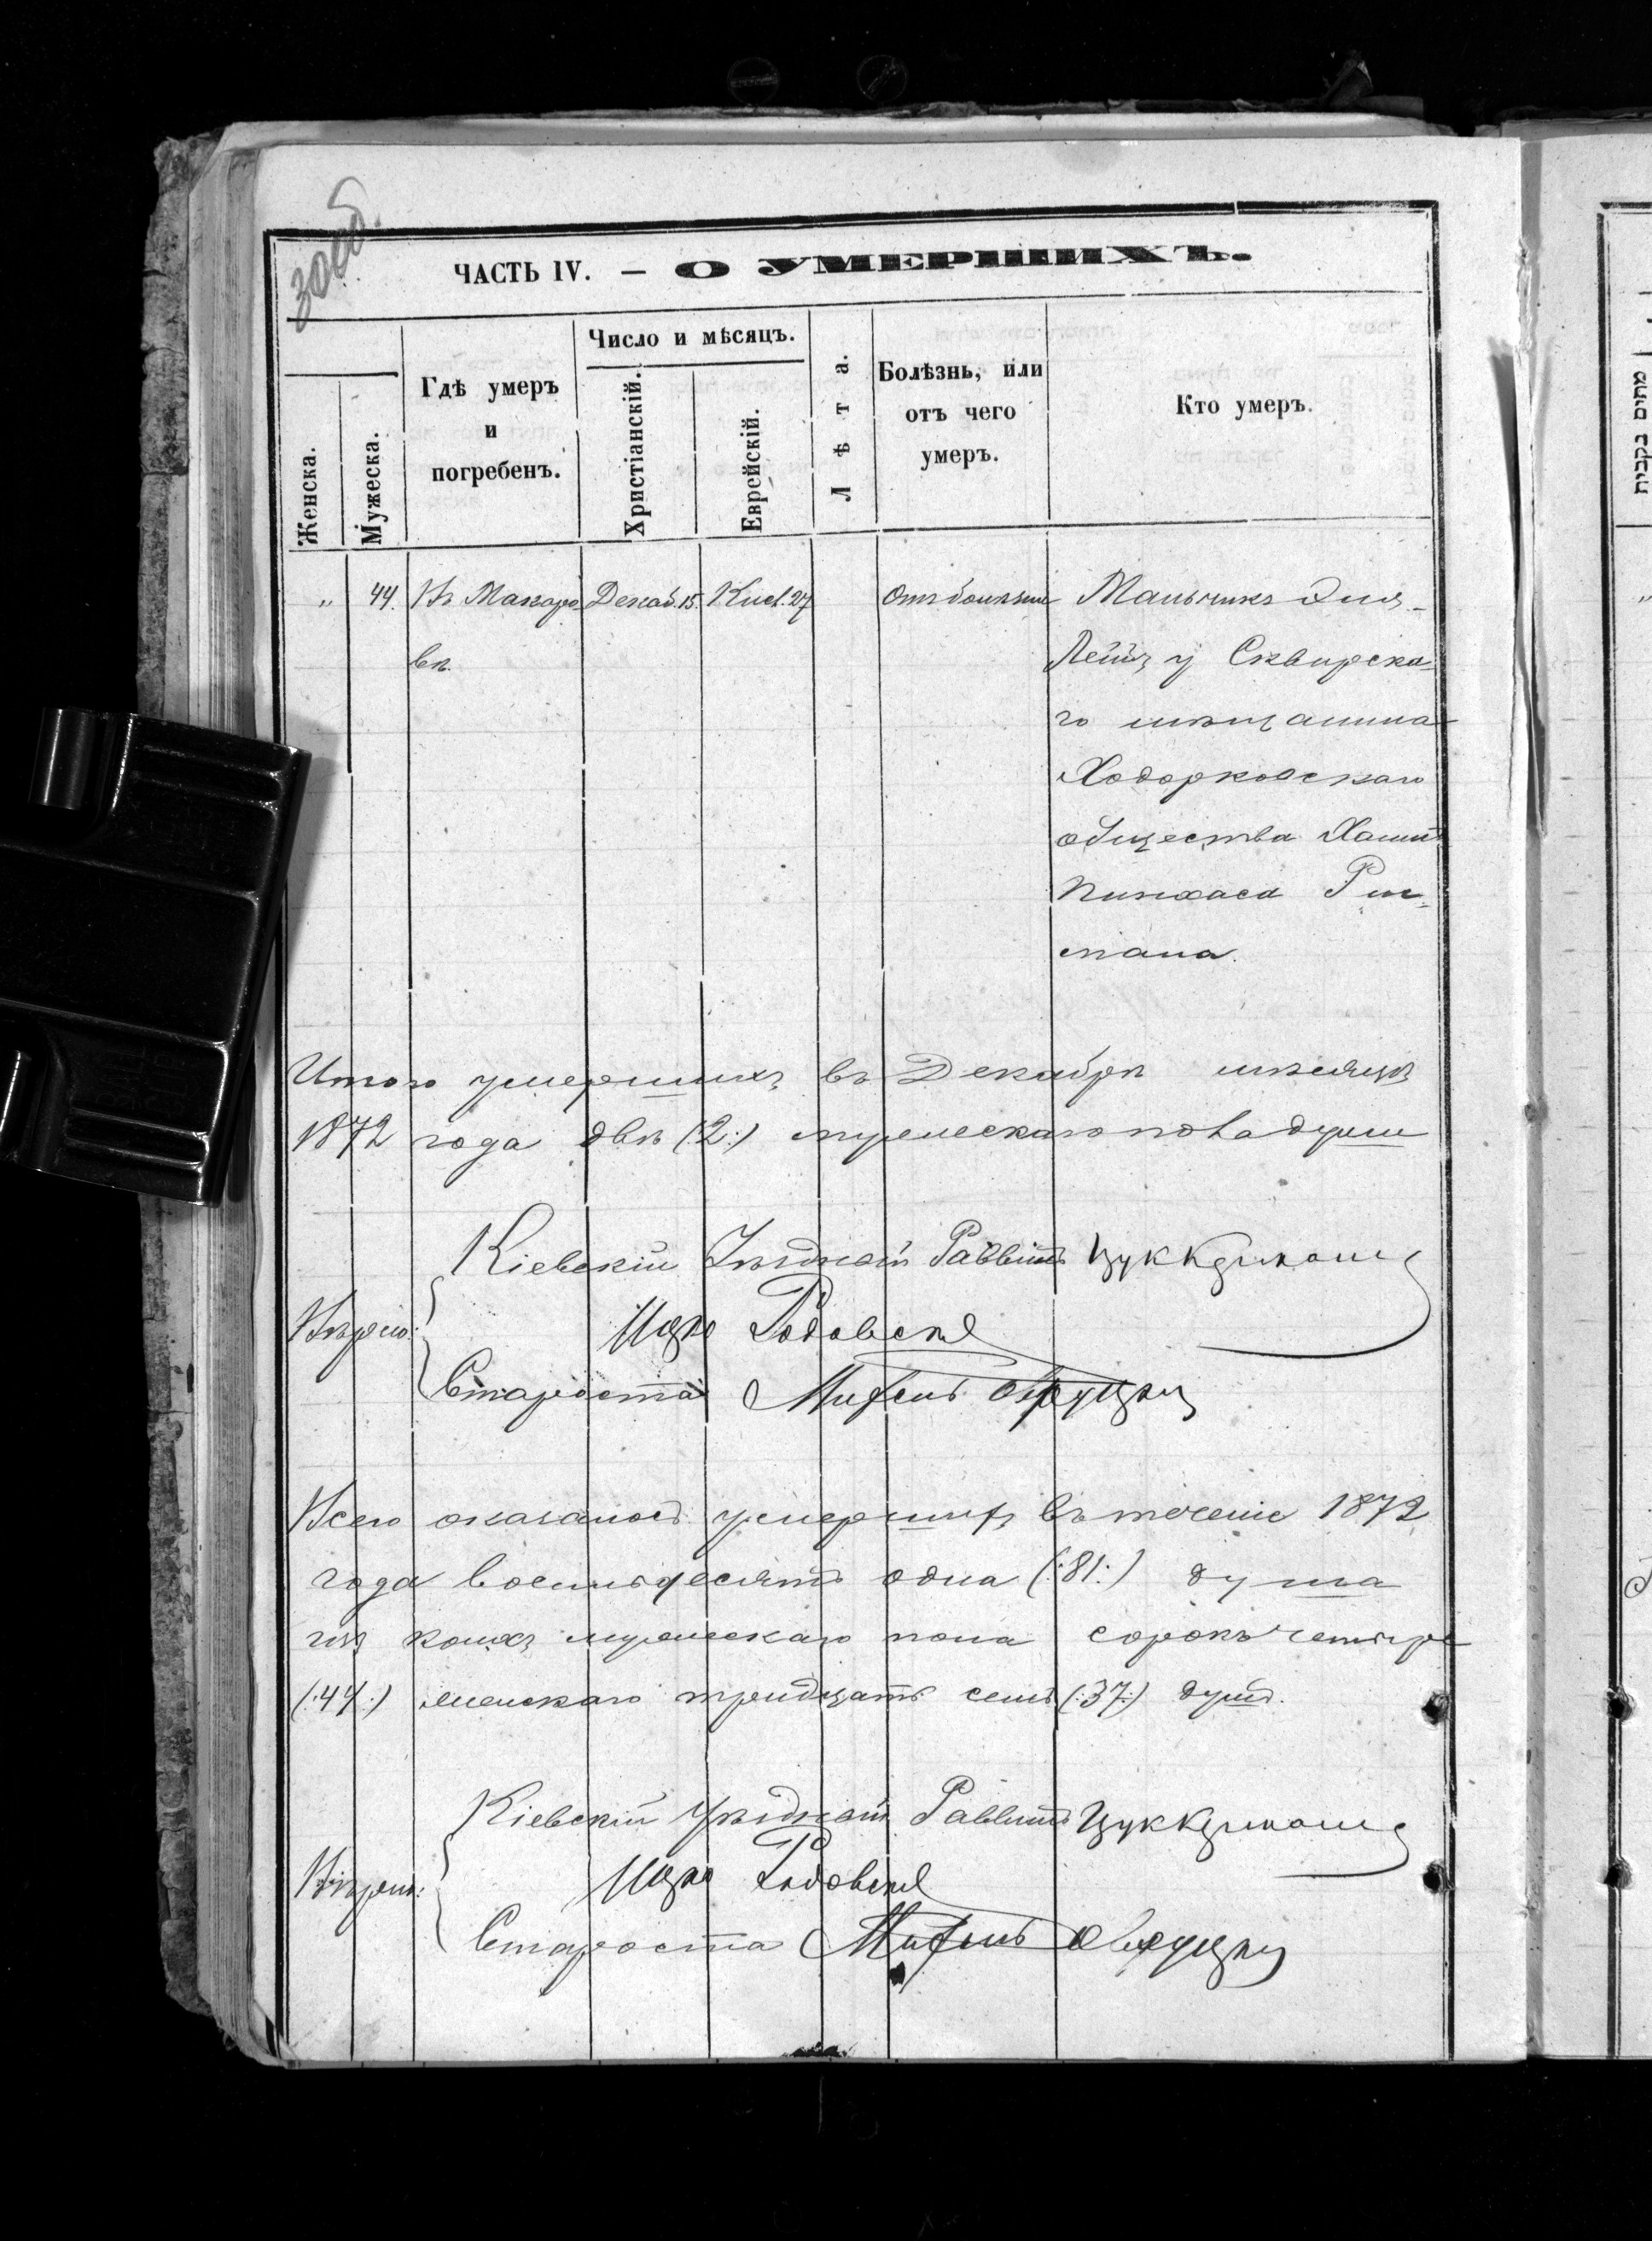 300об.
ЧАСТЬ IV. — О УМЕРШИХЪ.
Женска.
Мужеска.
Гдѣ умеръ
и
погребенъ.
Число и мѣсяцъ.
Христіанскій.
Еврейскій.
Лѣта.
Болѣзнь, или
отъ чего
умеръ.
Кто умеръ.
" 44. Въ Макаро Декаб. 15. Кисл. 27 Мальчикъ Эля-
вѣ. Лейбъ у Сквирска-
го мѣщанина
Ходорковскаго
общества Хаима
Пинхаса
мана.
Итого умершихъ въ Декабрѣ мѣсяцѣ
1872 года двѣ (:2:) мужескаго пола души
Кіевскій Уѣздный Раввинъ Цуккерманъ
Вѣрно:
Староста
Всего оказалось умершихъ въ теченіе 1872
года восемьдесятъ одна (:81:) душа
изъ коихъ мужескаго пола сорокъ четыре
(:44:) женскаго тридцать семь (:37:) душъ.
Кіевскій Уѣздный Раввинъ Цуккерманъ
Вѣрно:
Староста
מתים נקבות